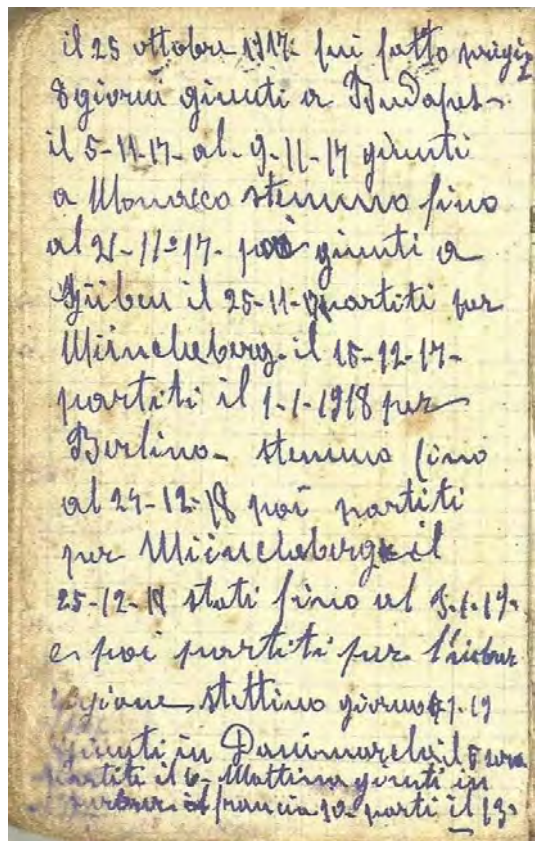 il 25 ottobre 1917. fui fatto prigi
8 giorni giunti a Budapes-
il 5-11-17- al- 9-11-17 giunti
a Monaco stemmo fino
al 21-11-17- poi giunti a
Güben il 25-11-17 partiti per
Müincheberg. il 15-12-17-
partiti il 1-1-1918 per
Berlino- stemmo fino
al 24-12-18 poi partiti
per Müincheberg il
25-12-18 stati fino al 3-1-19-
e poi partiti per
stettino giorno
giunti in Danimarcha il 5 sera
partiti il 6- Mattina giunti in
francia 10- parti il 13-